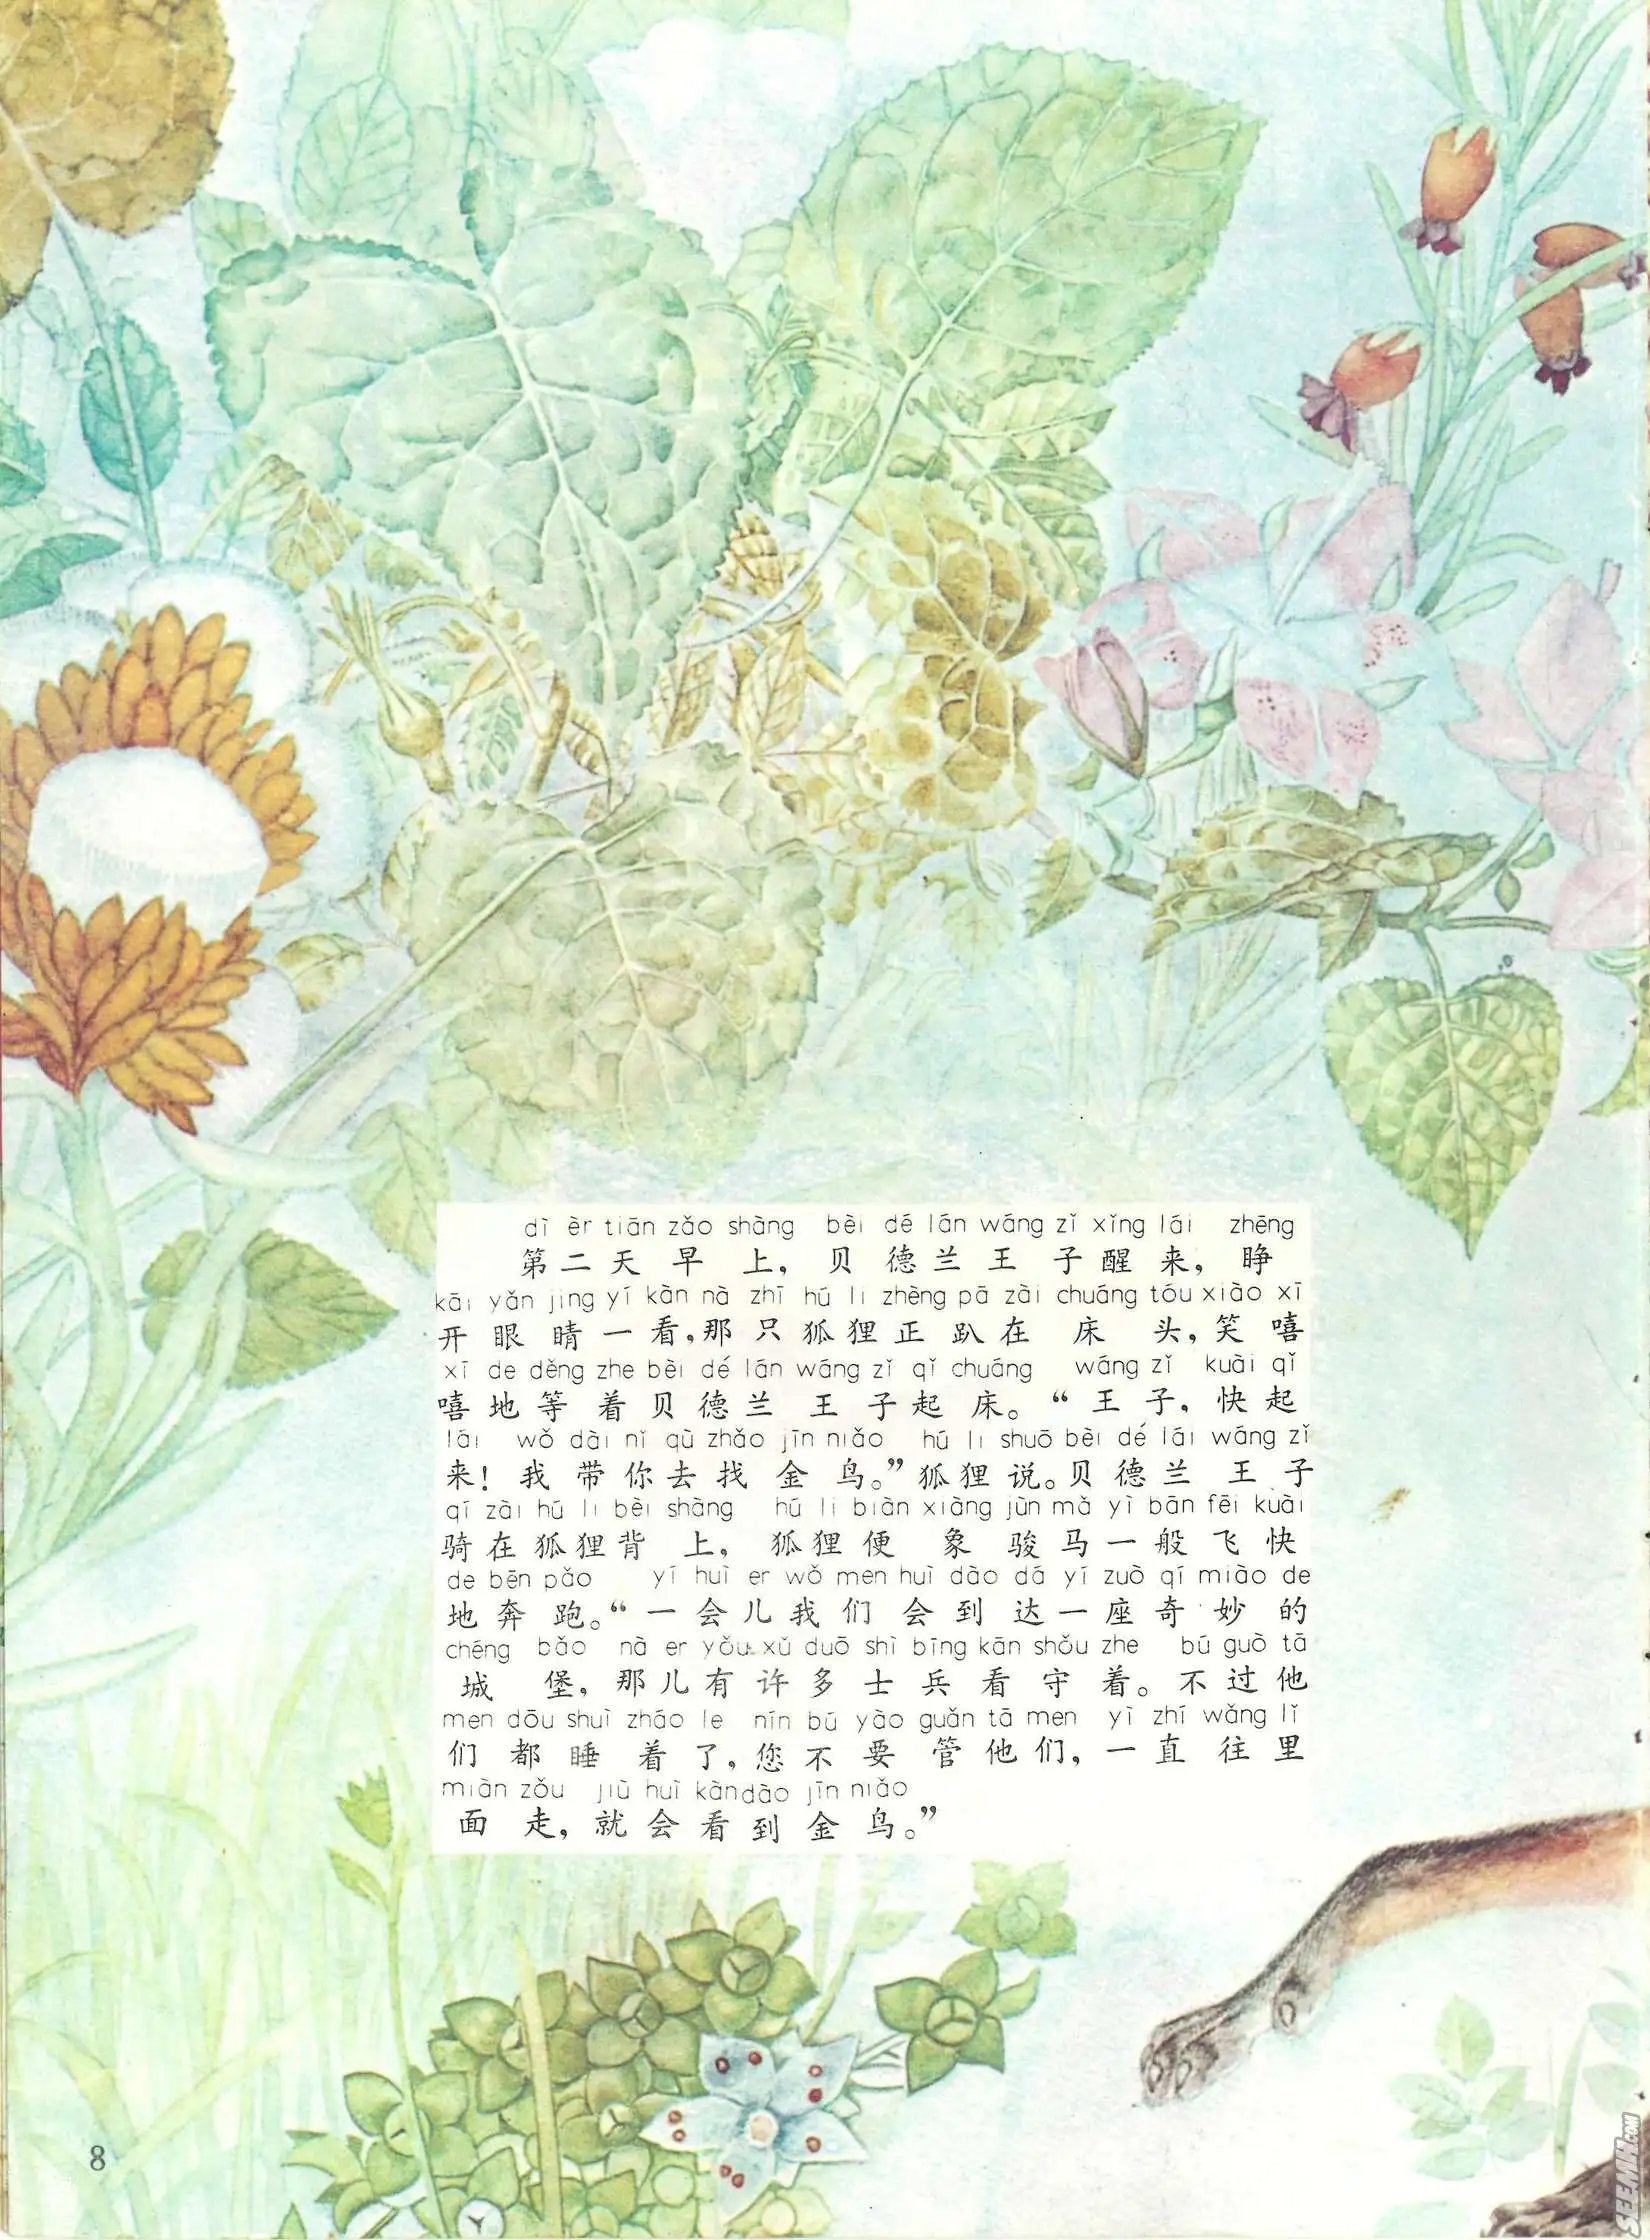 dì èr tiān zǎo shàng bèi dé lán wáng zǐ xǐng lái zhēng
第二天早上，贝德兰王子醒来，睁
kāi yǎn jing yí kàn nà zhī hú li zhèng pā zài chuáng tóu xiào xī
开眼睛一看，那只狐狸正趴在床头，笑嘻
xī de děng zhe bèi dé lán wáng zǐ qǐ chuáng wáng zǐ kuài qǐ
嘻地等着贝德兰王子起床。“王子，快起
lái wǒ dài nǐ qù zhǎo jīn niǎo hú li shuō bèi dé lái wáng zǐ
来！我带你去找金鸟。”狐狸说。贝德兰王子
qí zài hú li bèi shàng hú li biàn xiàng jùn mǎ yì bān fēi kuài
骑在狐狸背上，狐狸便象骏马一般飞快
de bēn pǎo yí huì er wǒ men huì dào dá yí zuò qí miào de
地奔跑。“一会儿我们会到达一座奇妙的
chéng bǎo nà er yǒu xǔ duō shì bīng kān shǒu zhe bú guò tā
城堡，那儿有许多士兵看守着。不过他
men dōu shuì zháo le nín bú yào guǎn tā men yì zhí wǎng lǐ
们都睡着了，您不要管他们，一直往里
miàn zǒu jiù huì kàndào jīn niǎo
面走，就会看到金鸟。”
8
SEEMH.COM